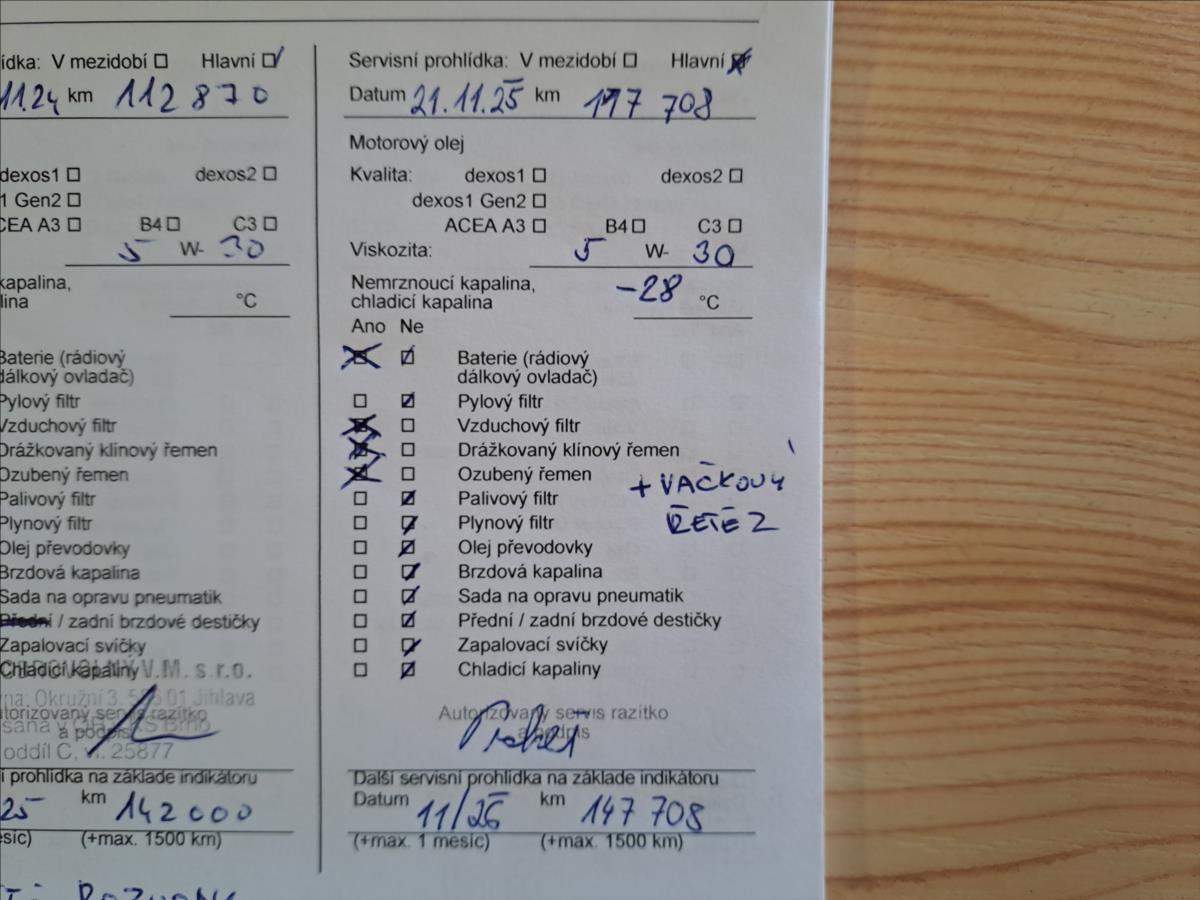 ídka: V mezidobí Hlavní
11.24 km 112 870
dexos1 dexos2
1 Gen2
CEA A3 B4 C3
5 W- 30
kapalina,
lina °C
Baterie (rádiový
dálkový ovladač)
Pylový filtr
Vzduchový filtr
Drážkovaný klínový řemen
Ozubený řemen
Palivový filtr
Plynový filtr
Olej převodovky
Brzdová kapalina
Sada na opravu pneumatik
Přední / zadní brzdové destičky
Zapalovací svíčky
V.M. s.r.o.
Chladicí kapaliny
na: Okružní 3, 01 Jihlava
torizovaný servis razítko
a podpis
oddíl C, 25877
í prohlídka na základe indikátoru
25 km 142 000
ěsíc) (+max. 1500 km)
Servisní prohlídka: V mezidobí Hlavní
Datum 21.11.25 km 117 708
Motorový olej
Kvalita: dexos1 dexos2
dexos1 Gen2
ACEA A3 B4 C3
Viskozita: 5 W- 30
Nemrznoucí kapalina,
chladicí kapalina -28 °C
Ano Ne
Baterie (rádiový
dálkový ovladač)
Pylový filtr
Vzduchový filtr
Drážkovaný klínový řemen
Ozubený řemen
+ VAČKOVÝ
Palivový filtr
Plynový filtr ŘETĚZ
Olej převodovky
Brzdová kapalina
Sada na opravu pneumatik
Přední / zadní brzdové destičky
Zapalovací svíčky
Chladicí kapaliny
Autorizovaný servis razítko
a podpis
Další servisní prohlídka na základe indikátoru
Datum 11/26 km 147 708
(+max. 1 měsíc) (+max. 1500 km)